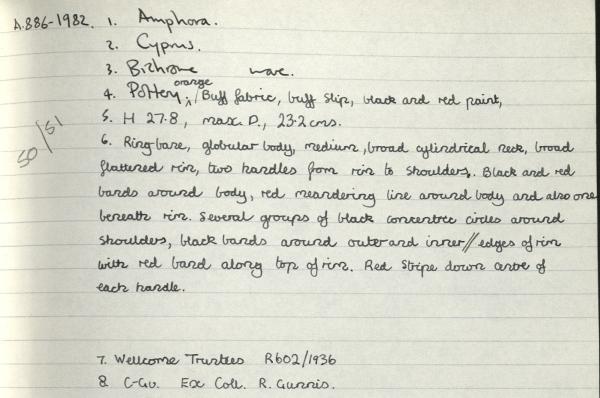 A.886-1982. 1. Amphora.
2. Cyprus.
3. Bichrome ware.
orange
4. Pottery, / Buff fabric, buff slip, black and red paint,
5. H 27.8, max. D., 23.2 cms.
50/51
6. Ring-base, globular body, medium, broad cylindrical neck, broad
flattened rim, two handles from rim to shoulders. Black and red
bands around body, red meandering line around body and also one
beneath rim. Several groups of black concentric circles around
shoulders, black bands around outer and inner // edges of rim
with red band along top of rim. Red stripe down centre of
each handle.
7. Wellcome Trustees R602/1936
8. C-Gu. Ex Coll. R. Gunnis.